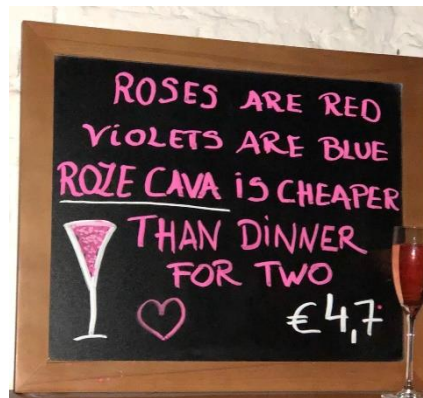 ROSES ARE RED
VIOLETS ARE BLUE
ROZE CAVA IS CHEAPER
THAN DINNER
FOR TWO
€4,7